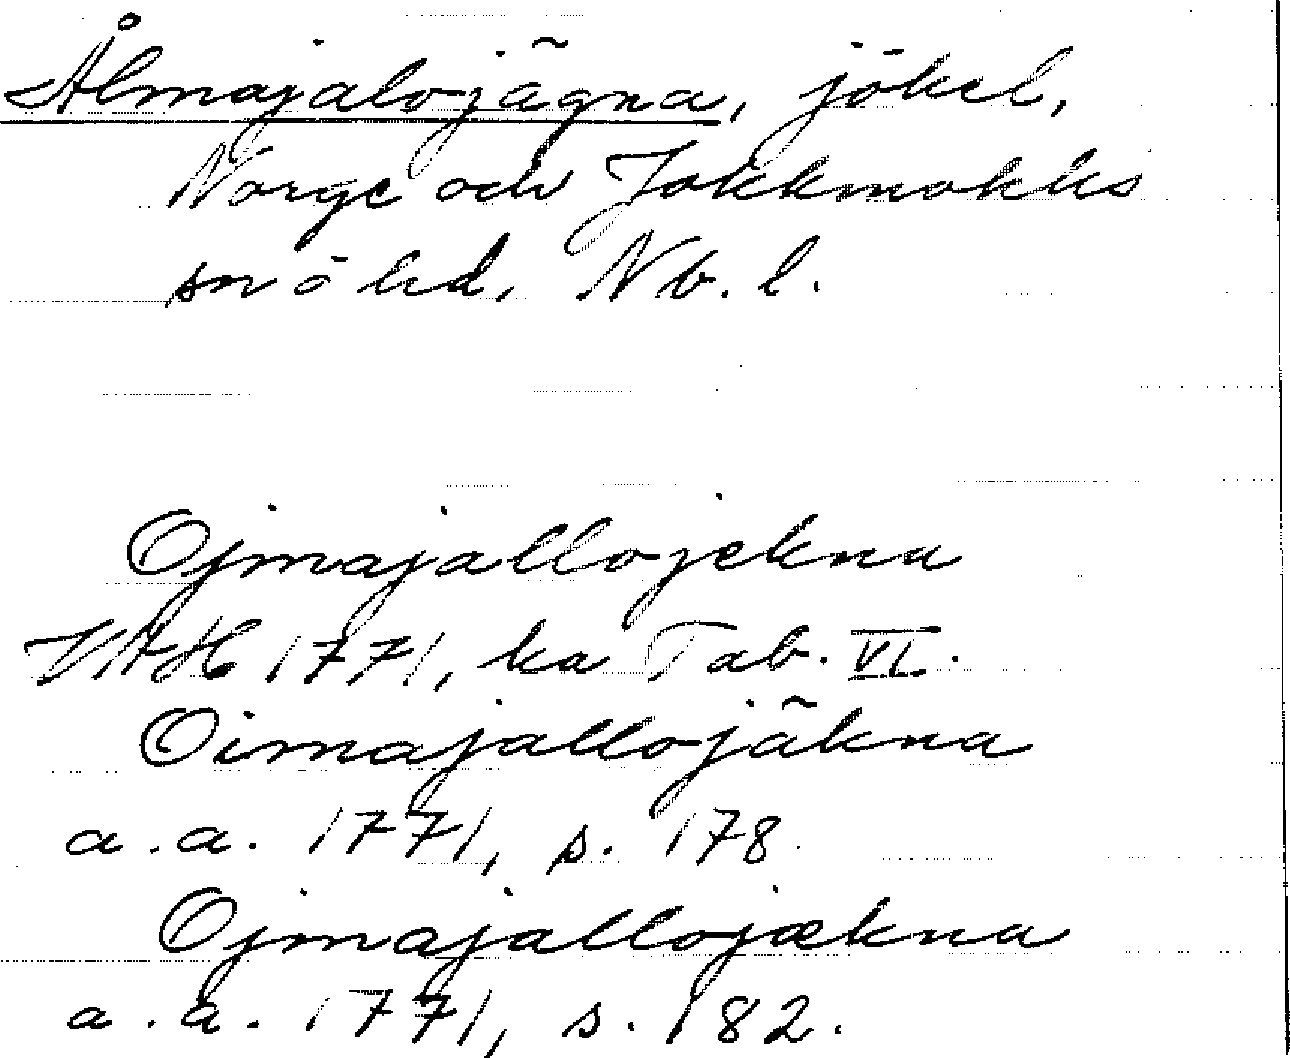 Ålmajalojägna, jökel,
Norge och Jokkmokks
sn ö hd, Nb. l.
Ojmajallojekna
VAH 1771, ka Tab. VI.
Oimajallojäkna
a. a. 1771, s. 178
Ojmajallojækna
a. a. 1771, s. 182.